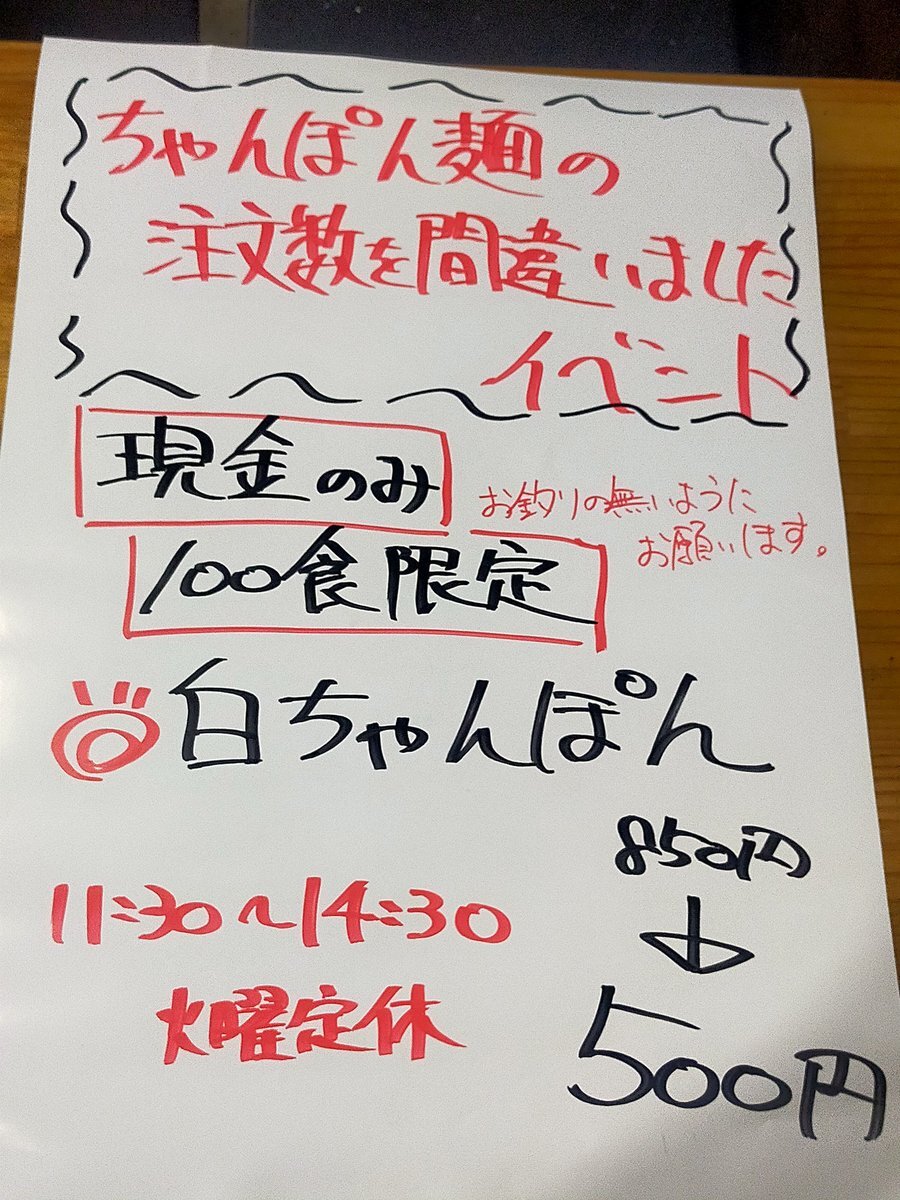 ちゃんぽん麺の
注文数を間違いました
イベント
現金のみ
お釣りの無いように
お願いします。
100食限定
白ちゃんぽん
850円
↓
500円
11:30〜14:30
火曜定休